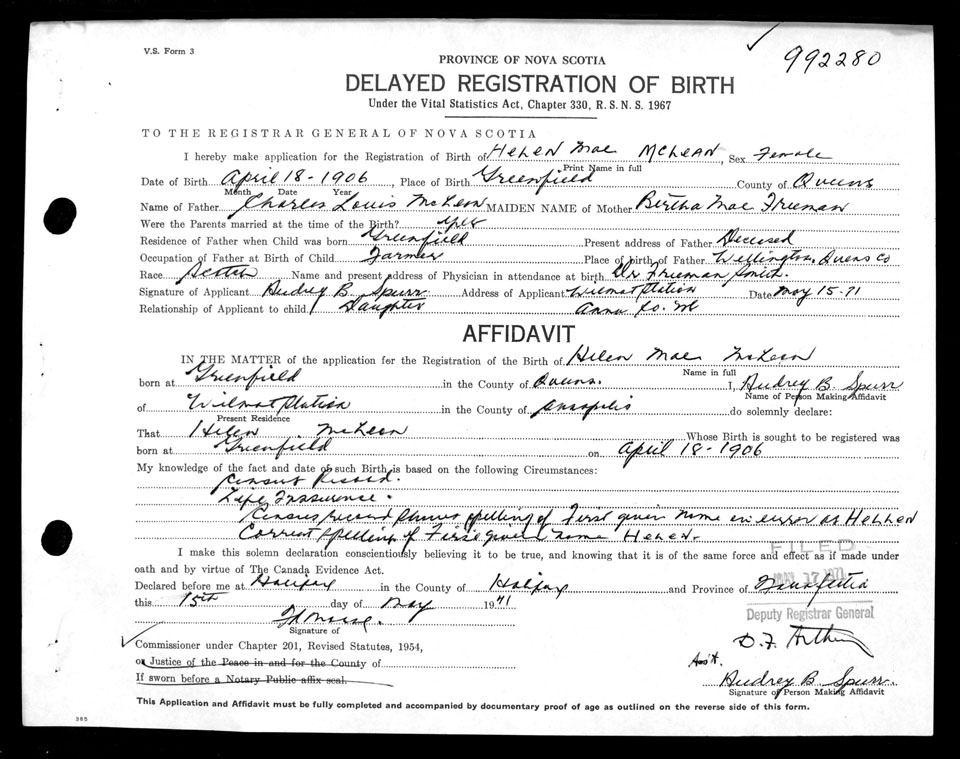 V.S. Form 3
992280
PROVINCE OF NOVA SCOTIA
DELAYED REGISTRATION OF BIRTH
Under the Vital Statistics Act, Chapter 330, R.S.N.S. 1967
TO THE REGISTRAR GENERAL OF NOVA SCOTIA
I hereby make application for the Registration of Birth of HELEN Mae McLEAN, Sex Female
Print Name in full
Date of Birth April 18-1906, Place of Birth Greenfield County of Queens
Month Date Year
Name of Father Charles Louis McLean MAIDEN NAME of Mother Birtha Mae Freeman
Were the Parents married at the time of the Birth? yes
Residence of Father when Child was born Greenfield Present address of Father Decesed
Occupation of Father at Birth of Child Farmer Place of birth of Father Wellington, Quens Co
Race Scotch Name and present address of Physician in attendance at birth Dr Freeman Smith.
Signature of Applicant Audrey B. Spurr Address of Applicant Wilmot Station Date May 15-71
Relationship of Applicant to child Daughter Anna Co.
AFFIDAVIT
IN THE MATTER of the application for the Registration of the Birth of Helen Mae McLean
Name in full
born at Greenfield in the County of Quens. I, Audrey B. Spurr
Name of Person Making Affidavit
of Wilmot Station in the County of Annapolis do solemnly declare:
Present Residence
That Helen McLean Whose Birth is sought to be registered was
born at Greenfield on April 18-1906
My knowledge of the fact and date of such Birth is based on the following Circumstances:
Census Record.
Life Inssurence.
Census record shows spelling of First given name in error as HELLEN
Correct spelling of First given name HELEN.
FILED
I make this solemn declaration conscientiously believing it to be true, and knowing that it is of the same force and effect as if made under
oath and by virtue of The Canada Evidence Act.
MAY 17 1971
Declared before me at Halifax in the County of Halifax and Province of Nova Scotia
this 15th day of May 1971
Deputy Registrar General
Signature of
D.F. Arthur
Commissioner under Chapter 201, Revised Statutes, 1954,
or Justice of the Peace in and for the County of
Ass't.
If sworn before a Notary Public affix seal.
Audrey B Spurr
Signature of Person Making Affidavit
This Application and Affidavit must be fully completed and accompanied by documentary proof of age as outlined on the reverse side of this form.
385